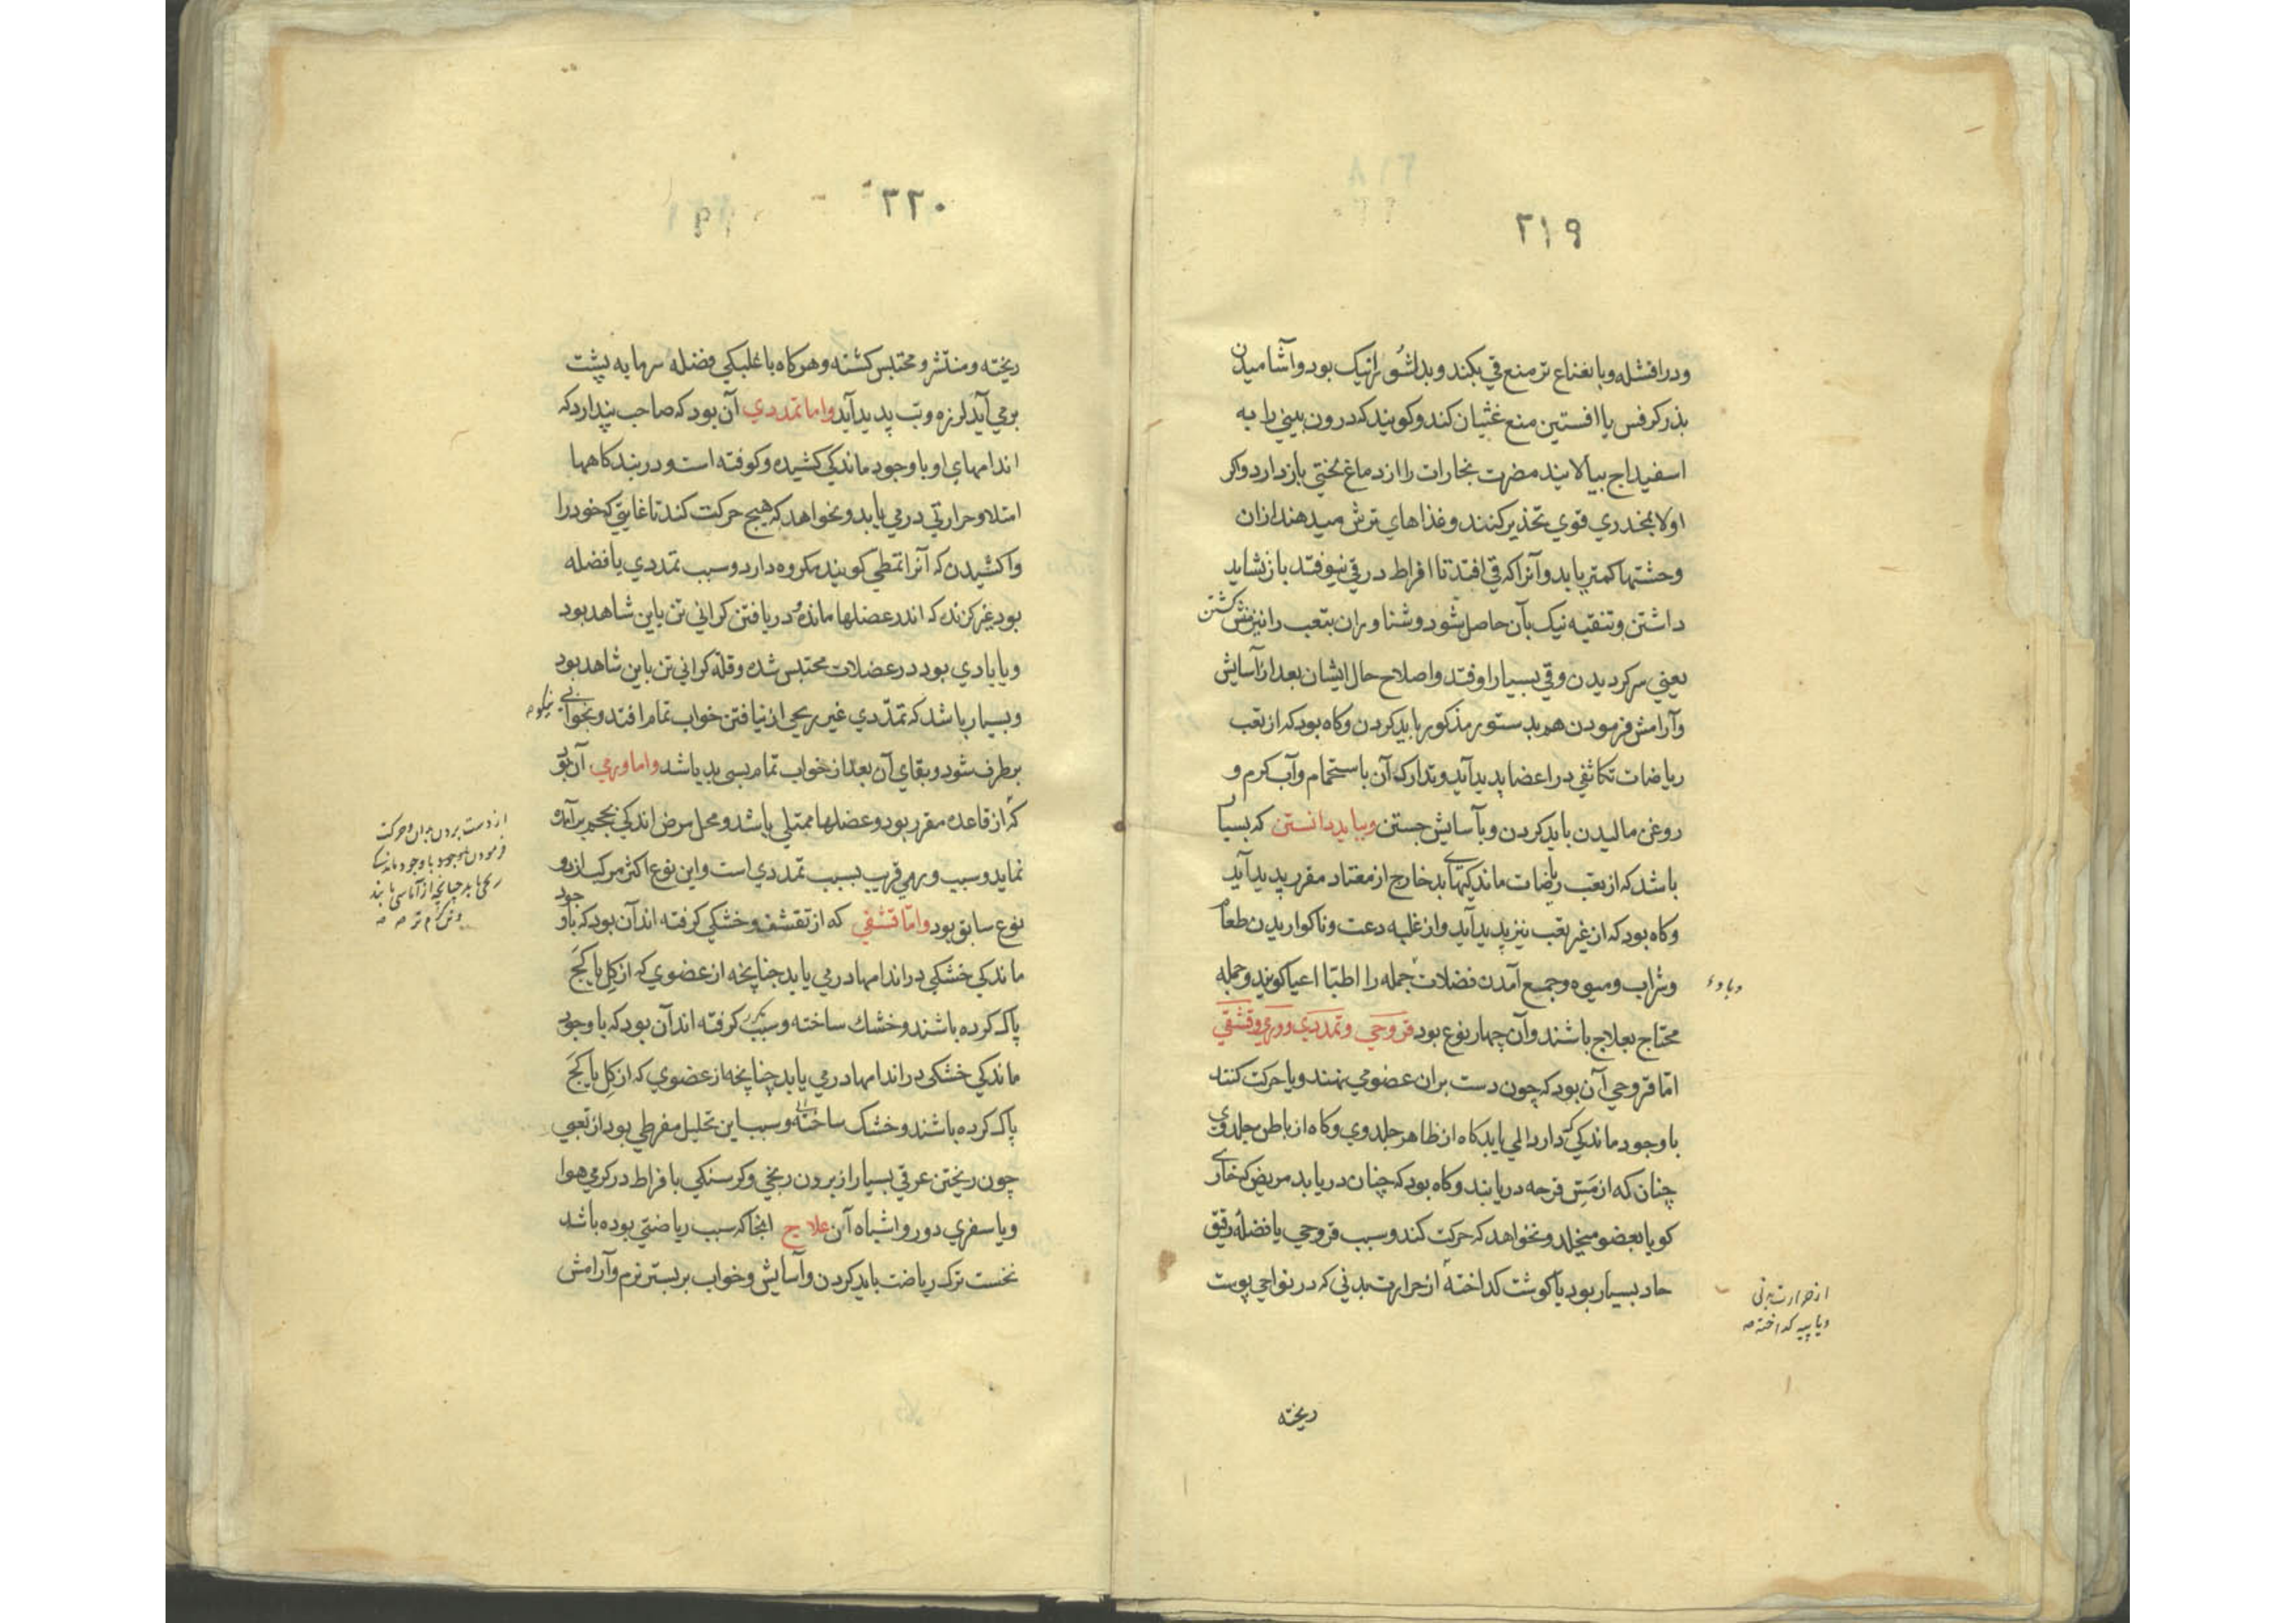 ۲۱۹
ودرافشله وبا نعناع تر منع قی بکند و بدلشو نیک بود وآشامیدن
بذر کرفس یا افسنتین منع غثیان کند وکویند که درون بینی را به
اسفیداج بیالایند مضرت بخارات را از دماغ لختی بازدارد واکر
اولا بمخدری قوی تخذیر کنند وغذاهای ترش میدهند ازان
وحشتها کمتر یابد وآنرا که قی افتد تا افراط در قی نیوفتد باز نشاید
داشتن وتنقیه نیک بآن حاصل شود وشناوران بتعب را نیز منش کشتن
یعنی سر کردیدن وقی بسیار اوفتد واصلاح حال ایشان بعد از آسایش
وآرامش فرمودن هم بدستور مذکور باید کردن وکاه بود که از تعب
ریاضات تکاثفی در اعضا پدید آید وتدارک آن باستحمام وآب کرم و
روغن مالیدن باید کردن وبآسایش جستن وبباید دانستن که بسیار
باشد که از تعب ریاضات ماندکیهای بد خارج از معتاد مقرر پدید آید
وکاه بود که از غیر تعب نیز پدید آید واز غلبه دعت وناکواریدن طعام
وشراب ومیوه وجمع آمدن فضلات جمله را اطبّا اعیا کویند وجمله
محتاج بعلاج باشند وآن چهار نوع بود قروحی وتمددی وورمی وقشفی
امّا قروحی آن بود که چون دست بران عضو می نهند ویا حرکت کنند
باوجود ماندکی که دارد المی یابد کاه از ظاهر جلد وی وکاه از باطن جلد وی
چنان که از مسّ قرحه دریابند وکاه بود که چنان دریابد مریض که خاری
کویا بعضو میخلد ونخواهد که حرکت کند وسبب قروحی یا فضلهٔ رقیق
حاد بسیار بود یا کوشت کداخته از حرارت بدنی که در نواحی پوست
از حرارت بدنی
ویا پیه کداخته صه
ریخته
۲۲۰
ریخته ومنتشر ومحتبس کشته وهرکاه با غلبکی فضله سرما به پشت
برمی آید لرزه وتب پدید آید واما تمددی آن بود که صاحب پندارد که
اندامهای او باوجود ماندکی کشیده وکوفته است ودر بندکاهها
امتلا وحرارتی درمی یابد ونخواهد که هیچ حرکت کند تا غایتی که خود را
واکشیدن که آنرا تمطی کویند مکروه دارد وسبب تمددی یا فضله
بود غیر کزنده که اندر عضلها مانده ودریافتن کرانی تن باین شاهد بود
ویا بادی بود در عضلات محتبس شده وقلّه کرانی تن باین شاهد بود
وبسیار باشد که تمدّدی غیر ریحی از نیافتن خواب تمام افتد وبخوابی نیکو صه
برطرف شود وبقای آن بعد از خواب تمام بسی بد باشد واما ورمی آن بود
که از قاعده مقرر بود وعضلها ممتلی باشد ومحل مرض اندکی بحجم برآمده
نماید وسبب ورمی قریب بسبب تمددی است واین نوع اکثر مرکب از دو
نوع سابق بود وامّا قشفی که از تقشف وخشکی کرفته اند آن بود که باوجود
ماندکی خشکی در اندامها درمی یابد چنانچه از عضوی که از کل یا کج
پاک کرده باشند وخشک ساخته وسبب کرفته اند آن بود که باوجود
ماندکی خشکی در اندامها درمی یابد چنانچه از عضوی که از کل یا کج
پاک کرده باشند وخشک ساخته وسبب این تحلیل مفرطی بود از تعبی
چون ریختن عرقی بسیار از برون ریخی وکرسنکی بافراط در کرمی هوا
ویا سفری دور واشباه آن علاج انجا که سبب ریاضتی بوده باشد
نخست ترک ریاضت باید کردن وآسایش وخواب بر بستر نرم وآرامش
از دست بردن بران وحرکت
فرمودن موجود باوجود
یابد چنانچه از آماسی یابند
وتن کرم تر صه صه